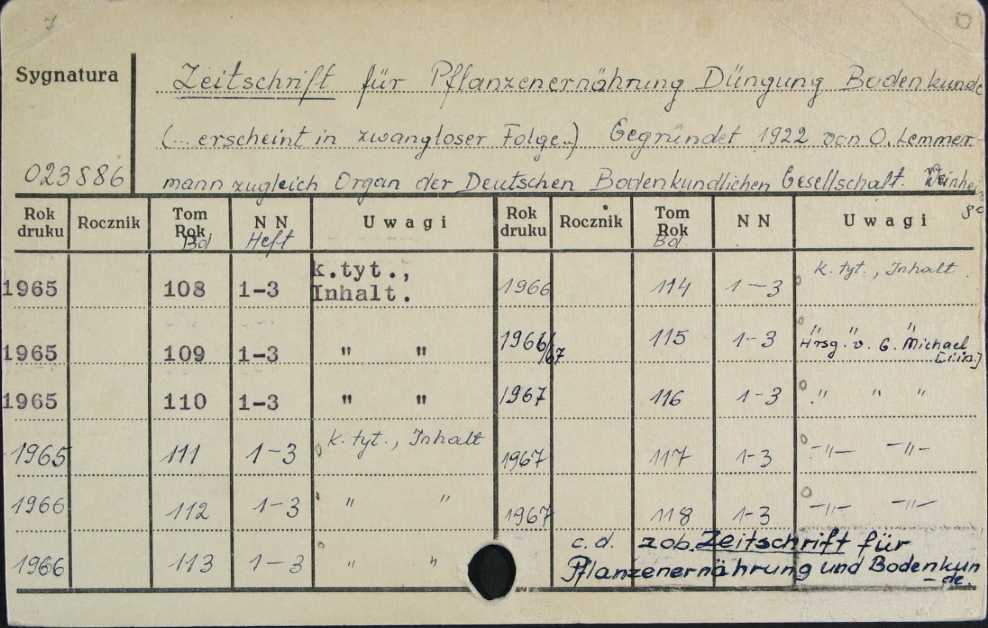 Sygnatura
Zeitschrift für Pflanzenernährung Düngung Bodenkunde
(... erscheint in zwangloser Folge..) Gegründet 1922 von O. Lemmer-
023586 mann zugleich Organ der Deutschen Bodenkundlichen Gesellschaft.
Rok druku Rocznik Tom Rok Bd NN Heft Uwagi Rok druku Rocznik Tom Rok Bd NN Uwagi
1965 108 1-3 k.tyt., Inhalt. 1966 114 1-3 k. tyt., Inhalt.
1965 109 1-3 " " 1966/67 115 1-3 " " "
Hrsg. v. G. Michael
1965 110 1-3 " " 1967 116 1-3 " " "
1965 111 1-3 k. tyt., Inhalt 1967 117 1-3 -"- -"-
1966 112 1-3 " " 1967 118 1-3 -"- -"-
1966 113 1-3 " " c.d. zob. Zeitschrift für
Pflanzenernährung und Bodenkun
-de.